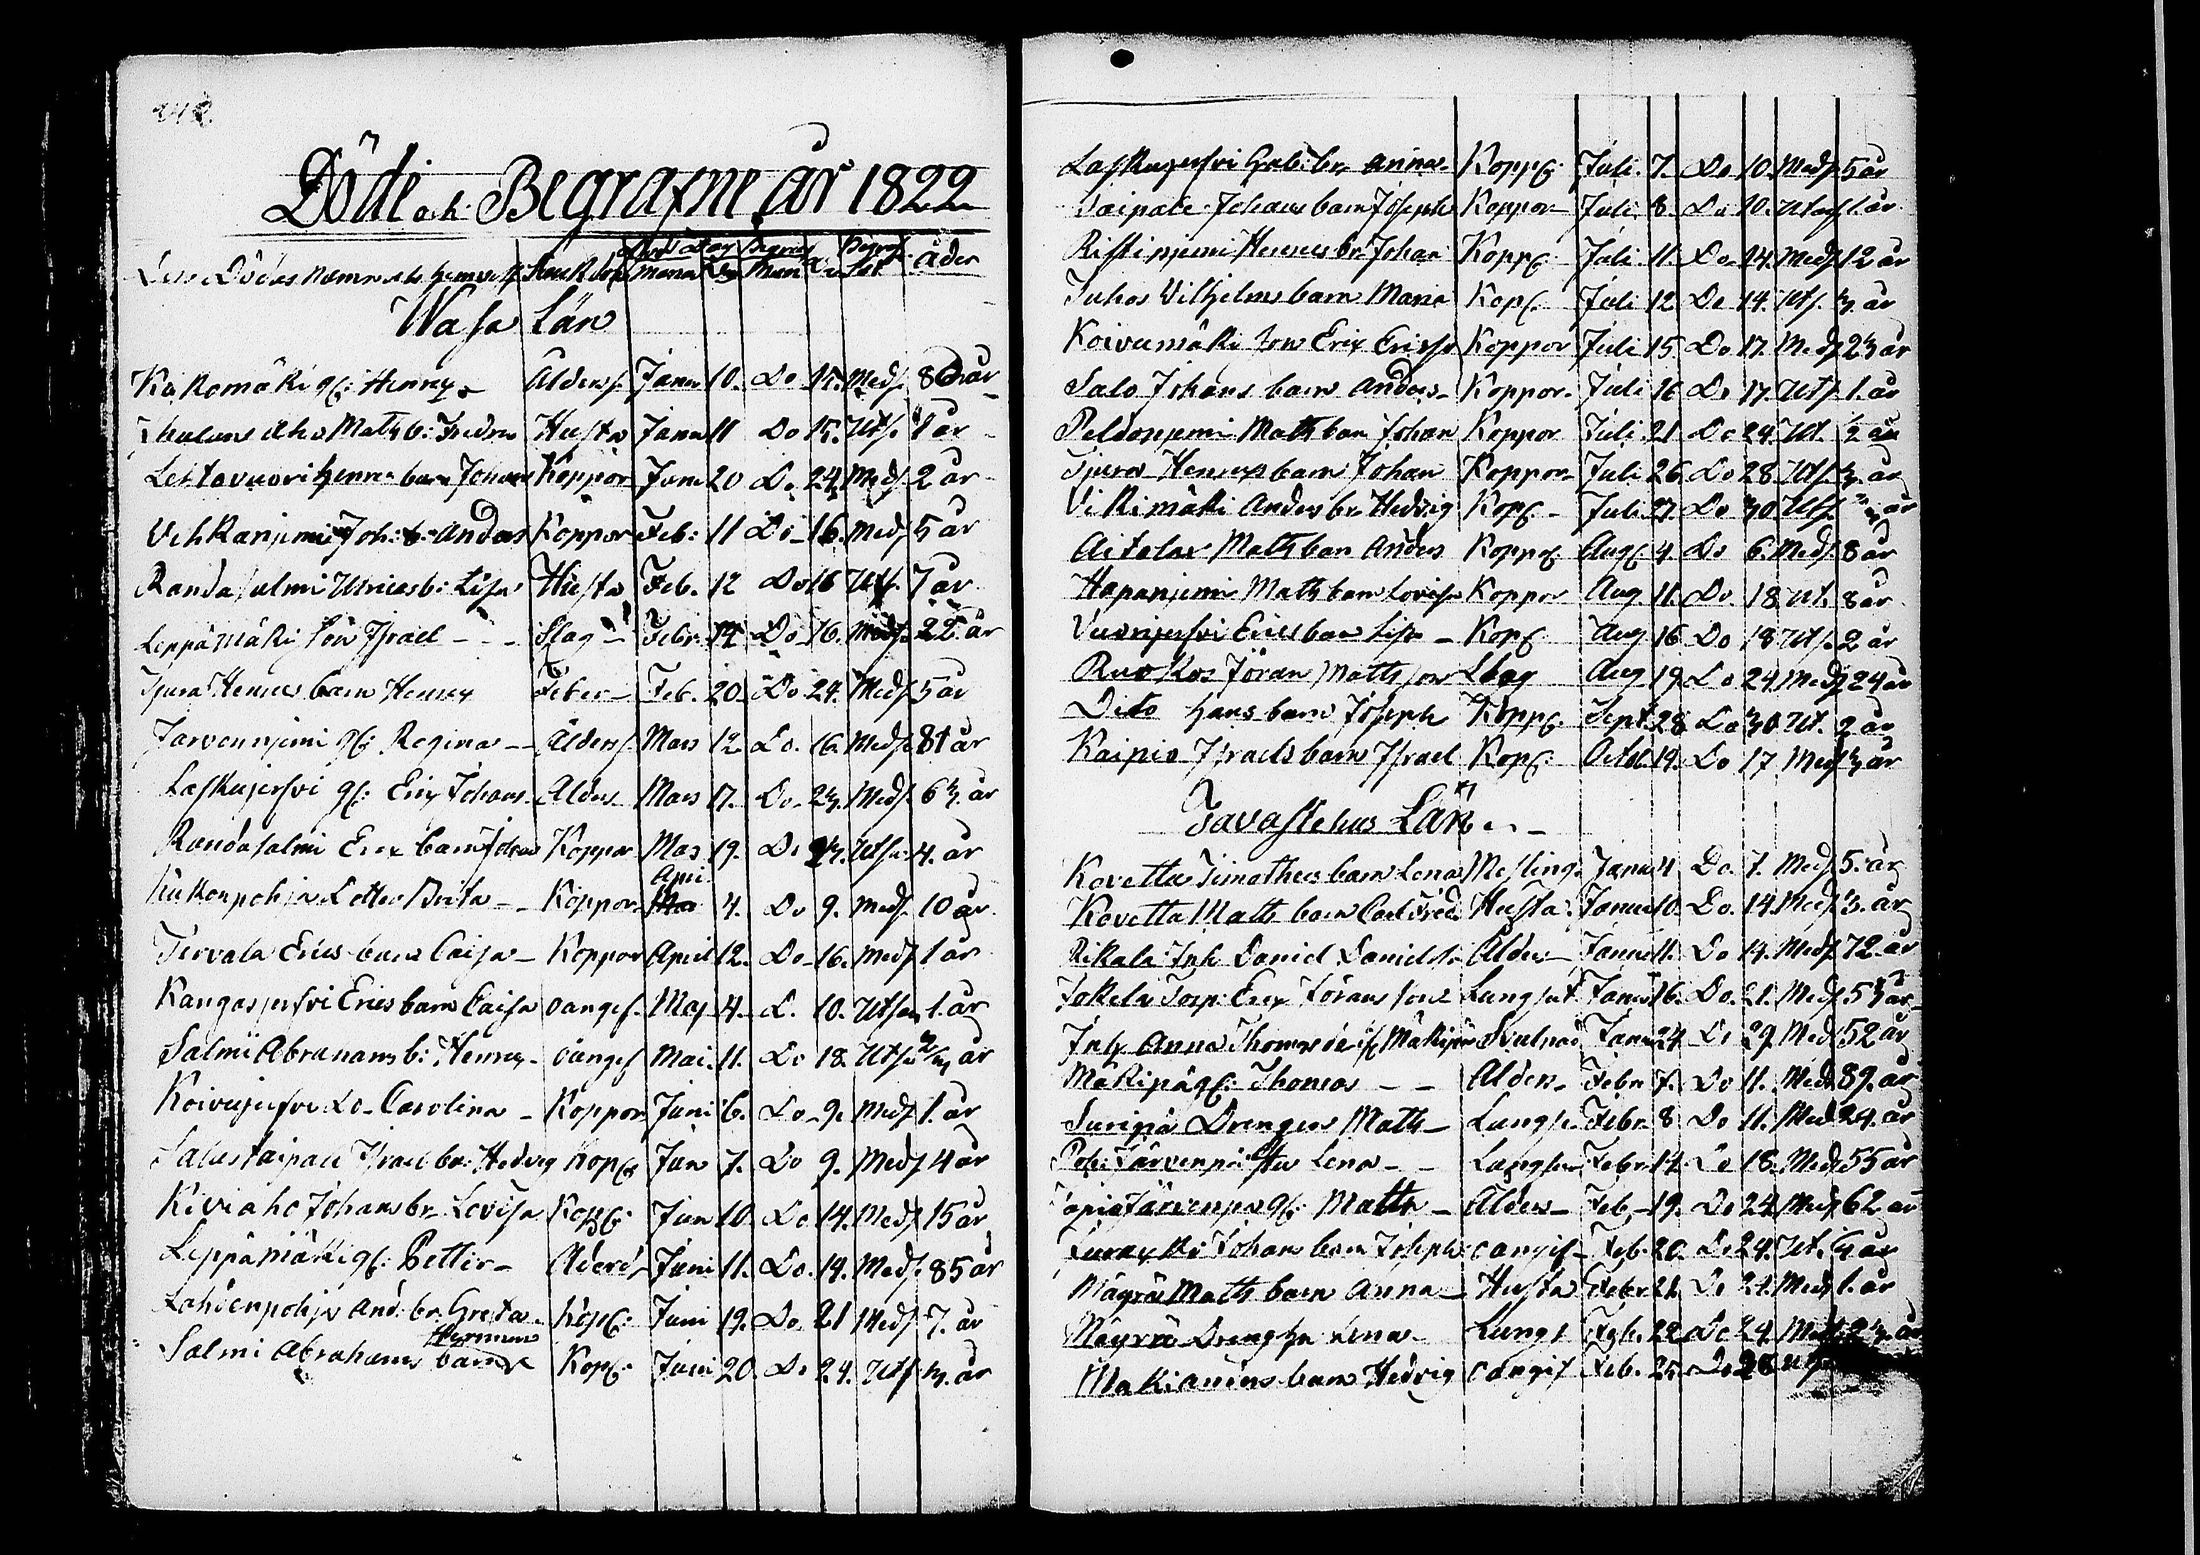 242
Döde och Begrafne år 1822
Död Dag Begraf Begraf
Dess Dödas namn och hemvist Siukdom månad Dag Mån Da Sät åder
Wasa Län
Kukomäki gl: Henny Ålders. Janu 10. Do 15. Meds. 8 år
Aho Maths b: Fredric Husta Janu 11 Do 15. Uts. 1 år
Lehtovuori Henr barn Johan Koppor Janu 20 Do 24 Meds. 2 år
Vehkanjemi Joh: b: Anders Koppor Feb: 11 Do 16. Meds 5 år
Randasalmi Ulricas b: Lisa Husta Feb. 12 Do 16 Uts. 7 år
Leppämäki Son Israel - - - Slag Febr. 14 Do 16. Meds. 22 år
Tjura Henrics barn Henric Feber Feb. 20 Do 24. Meds 5 år
Jarvennjemi gl: Regina Ålders Mars 12 Do. 16. Meds 81 år
Laskujersvi gl: Erix Johans Ålders Mars 17. Do 23. Meds. 63. år
Randasalmi Erix barn Johan Koppor Mars 19. Do 23. Utsu. 4. år
Kukonpohja Lotter Brita Koppor April 4. Do 9. Meds. 10 år
Tervala Erics barn Caisa Koppor April 12. Do 16. Meds 1 år
Kangasjersvi Erics barn Caisa oangif. Maj 4. D. 10. Utsu 1. år
Salmi Abrahams b: Henric oangif Mai. 11. Do 18. Utsu år
Koivujersvi Do Carolina Koppor Juni 6. Do 9. Meds 1. år
Salustaipale Israel br. Hedvig Kop: Jun 7. Do 9. Meds 4 år
Kiviaho Johans br. Lovisa Kop: Jun 10. Do 14. Meds 15 år
Leppämäki gl: Petter Ålders Juni 11. Do. 14. Meds. 85 år
Lahdenpohja And: br: Greta Kop: Juni 19. Do 21 Meds 7. år
Herman
Salmi Abrahams barn Kop: Juni 20 Do 24. Uts 3. år
Laskujersvi Gab: br Anna Kopp: Juli. 7. Do 10. Meds. 5 år
Taipale Johans barn Joseph Koppor Juli. 8. Do 10. Utsu 1. år
Ristinjemi Henrics br Johan Kopp: Juli 11. Do 14. Meds. 12 år
Juhos Vilhelms barn Maria Kop: Juli 12. Do 14. Uts. 3. år
Koivumäki Son Erix Ericss Koppor Juli 15 Do 17. Meds 23 år
Salo Johans barn Anders Koppor Juli 16 Do 17. Uts. 1. år
Peldonjemi Maths barn Johan Koppor Juli 21 Do 24. Ut. 1/2 år
Tjura Henrics barn Johan Koppor Juli 26 Do 28. Uts. 3. år
Vikimäki Anders br Hedvig Kop: Juli 27. Do 30. Uts. år
Aitolax Maths barn Anders Kopp: Aug. 4. Do 6. Meds. 8 år
Hapanjemi Maths barn Lovisa Koppor Aug. 11. Do. 18 Ut. 8 år
Vuorijersvi Erics barn Lisa Kop: Aug 16 Do 18 Uts. 2 år
Ruokos Jöran Maths son Slag Aug 19. Do 24 Meds 24 år
Dito Hans barn Joseph Kopp: Sept. 28 Do 30 Ut. 2 år
Kaipio Israels barn Israel Kop: Octob. 14. Do 17 Meds 3 år
Tavastehus Län
Kovetta Timotheus barn Lena Mesling Janu 4 Do. 7. Meds 5. år
Kovetta Maths barn Carl Fred. Husta Janu 10. Do. 14. Meds 3. år
Rikala Inh Daniel Daniels Ålder Janu 11. Do 14. Meds 72. år
Jokela Torp: Erix Jörans son Lungsot Janu 16. Do. 21. Meds. 53 år
Inh Anna Thomas Mäkipä Janu 24 Do 29 Meds 52 år
Mäkipä gl: Thomas - - Ålder Febr. 7. Do 11. Meds 89. år
Suripä Drengen Maths Lungs. Febr. 8 Do 11. Meds 24. år
Järvenpä Hu Lena - - Lungsu Febr 14. Do 18. Meds 55 år
Järvenpä gl: Maths Ålder Feb. 19. Do 24 Meds 62 år
Johans barn Joseph oangif Feb. 20. Do 24. Ut. år
Mäyrä Maths barn Anna Husta Febr 21. Do 24. Meds 1. år
Mäyrä Drengsn Lena Lungs Feb. 22 Do 24 Meds 23. år
Makiainens barn Hedvig oangif Feb. 25. Do 28